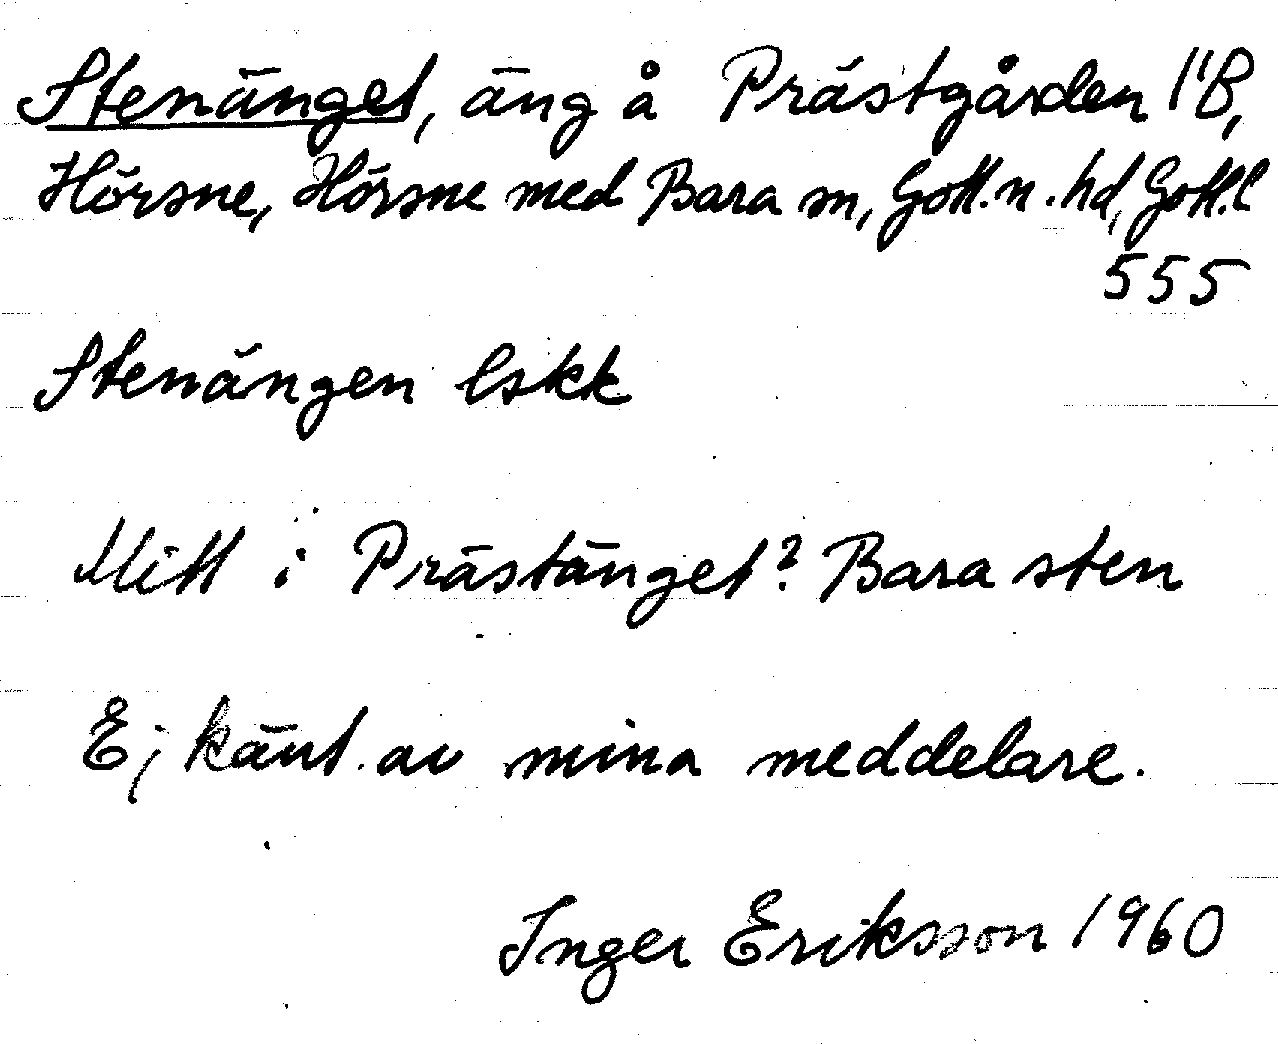 Stenänget, äng å Prästgården 1"B,
Hörsne, Hörsne med Bara sn, Gotl. n. hd, Gotl. l
555
Stenängen lskk
Mitt i Prästänget? Bara sten
Ej känt av mina meddelare.
Inger Eriksson 1960